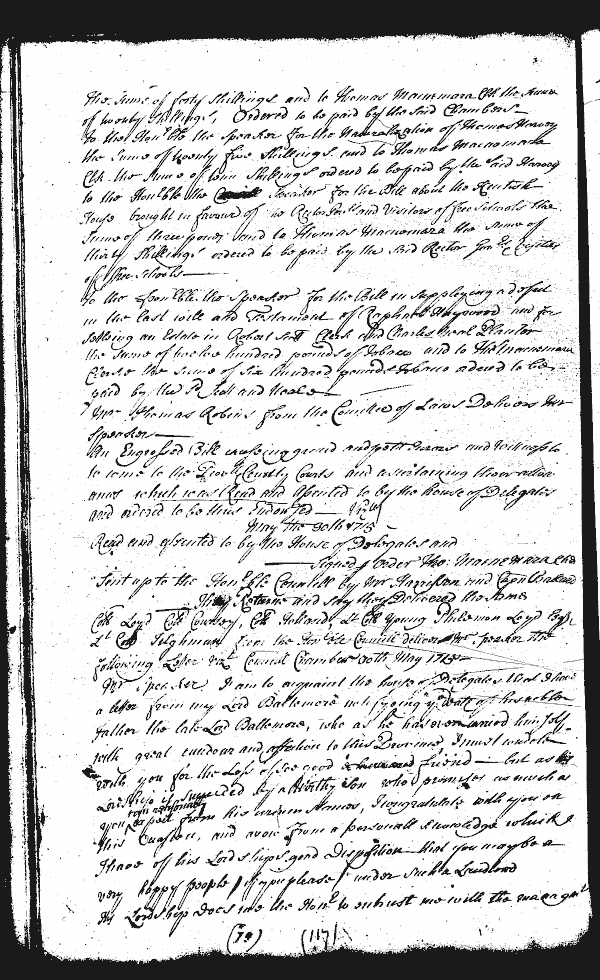 The Sume of forty Shillings and to Thomas Macnemara Clk the Sume
of twenty Shillings, Ordered to be paid by the Said Chambers
To the Honble the Speaker for the Naturalization of Thomas Harvey
the Sume of twenty five Shillings and to Thomas Macnemara
Clk the Sume of tenn Shillings ordered to be paid by the Said Harvey
to the Honble the Speaker for the Bill about the Kentish
House brought in favour of the Rector and Visitors of free Schools the
Sume of three pounds and to Thomas Macnemara the Sume of
thirty Shillings ordered to be paid by the Said Rector
of free Schools
To the Honble the Speaker for the Bill in Supplying a defect
in the last will and Testament of Raphael Haywood and for
Settling an Estate in Robert Clerk and Charles Neal
the Sume of twelve hundred pounds of Tobacco and to Tho Macnemara
Clerk the Sume of Six hundred pounds Tobacco ordered to be
paid by the and Neale
Mr Thomas Robins from the Comittee of Laws Delivers Mr
Speaker
An Engrossed Bill causing grand and petit Jurors and Witnesses to
to come to the Provll & County Courts and ascertaining their allow
ances which was Read and Assented to by the house of Delegates
and ordered to be thus Endorsed Vizt
May the 30th 1715
Read and assented to by the House of Delegates and
Signed p Order Tho: Macnemara Clk
Sent up to the Honble Councill by Mr Harrison and Capt
They Returne and say they Delivered the Same
Coll Loyd Coll Coursey, Coll Holland, Lt Coll Young Philemon Loyd Esqr
Lt Coll Tilghman from the Honble Councill deliver Mr Speaker the
following Letter vizt Councill Chamber 30th May 1715
Mr Speaker I am to acquaint the house of Delegates that I have
a letter from my Lord Baltemore notifying ye death of his noble
father the late Lord Baltemore, who as he has ever carried himself
with great candour and affection to this Province, I must condole
with you for the Loss of Soe good a friend but as his
Lordship is succeeded by a Worthy Son who promises as much as
you can reasonably expect from his Names, I congratulate with you on
this Occasion, and avow from a personall knowledge which I
I have of his Lordships good Disposition that you may be a
very happy people if you please under Such a Landlord
His Lordship does me the Honr to entrust me with the managmt
(79) (117)